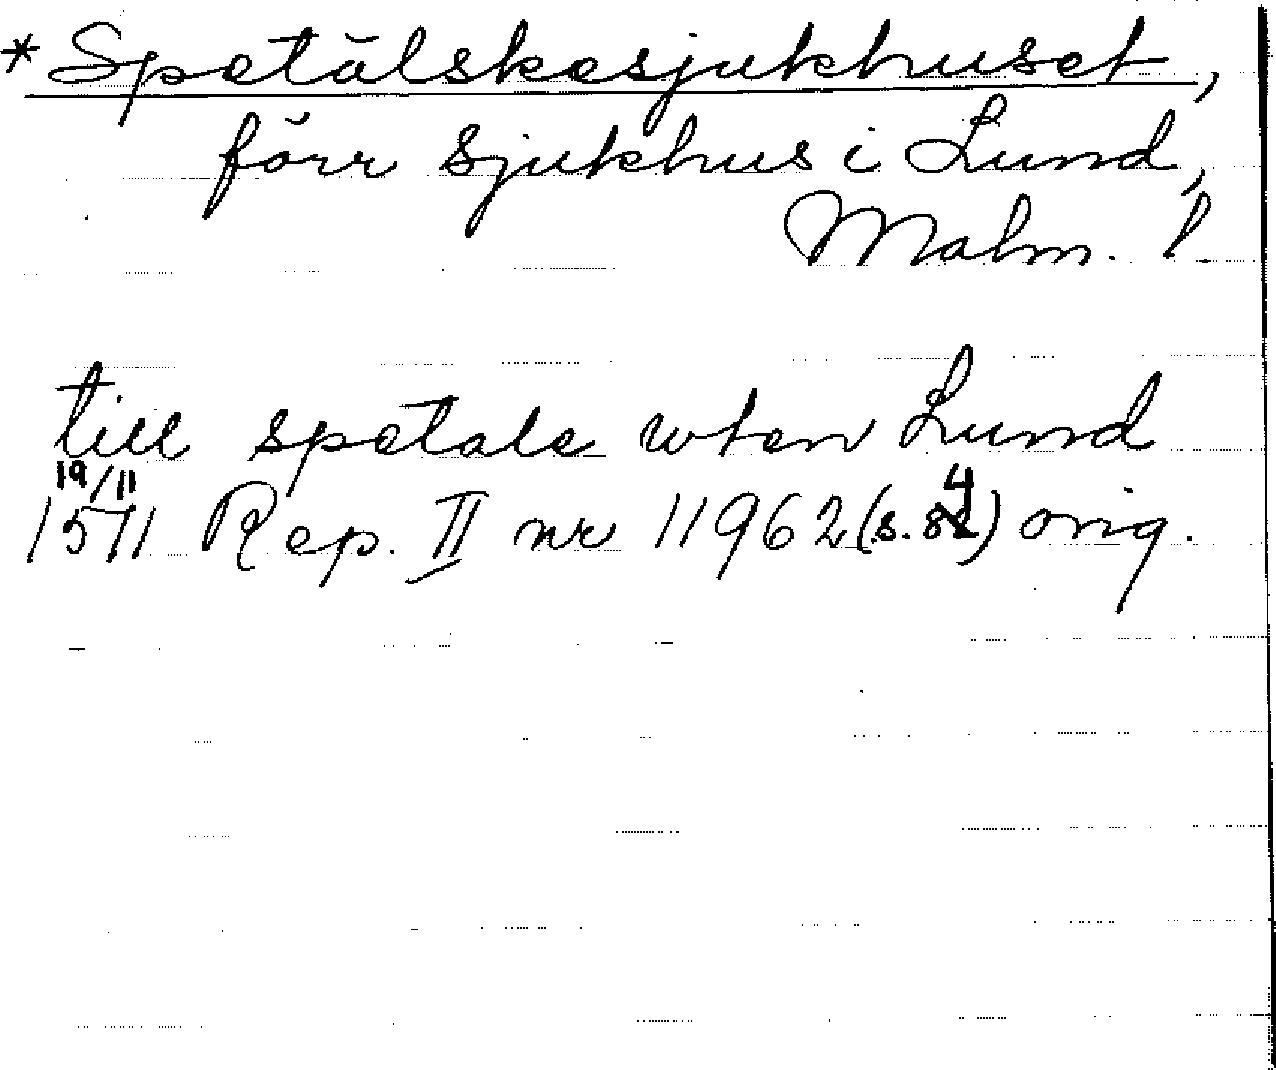 *Spetälskesjukhuset,
förr sjukhus i Lund,
Malm. l.
till spetale wten Lund
19/11
1511 Rep. II nr 11962 (s. 84) orig.